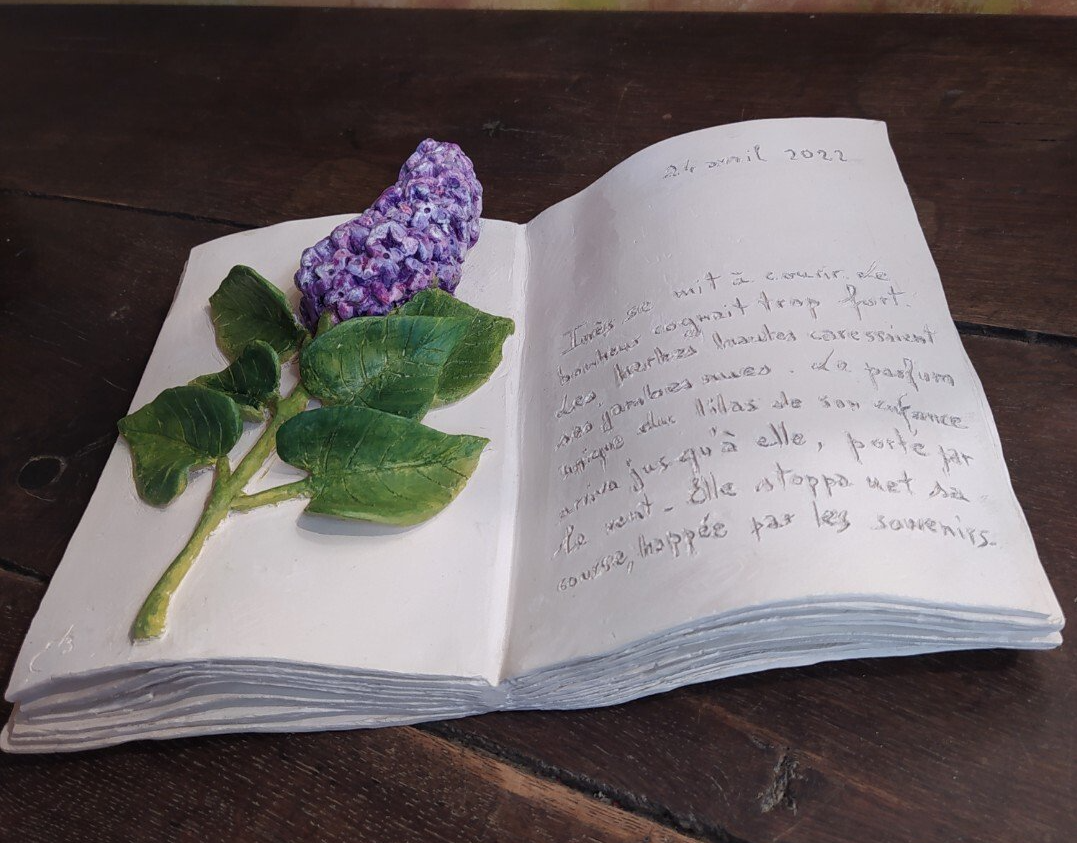 24 avril 2022
Inès se mit à courir. Le
bonheur cognait trop fort.
Les herbes hautes caressaient
ses jambes nues. Le parfum
unique du lilas de son enfance
arriva jusqu'à elle, porté par
le vent. Elle stoppa net sa
course, happée par les souvenirs.